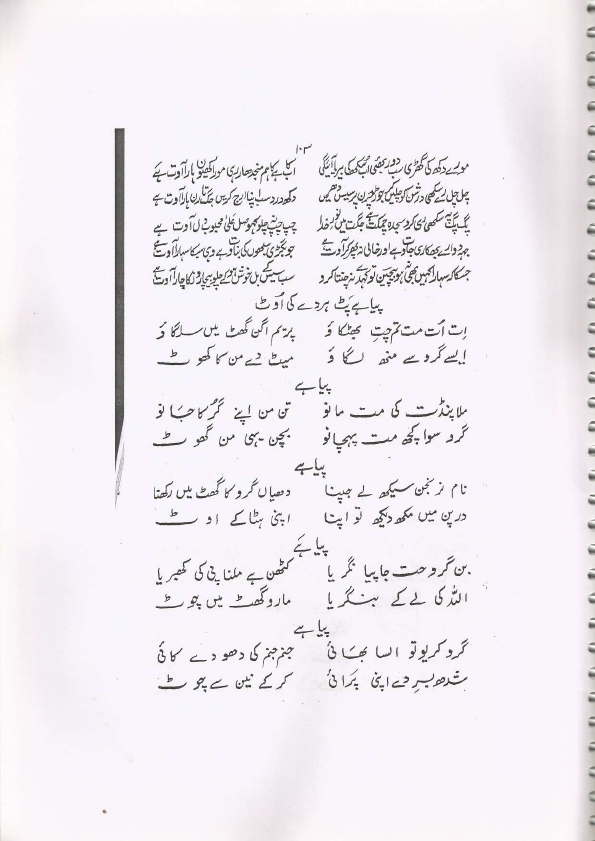 ۱۰۳
مورے دکھ کی گھڑی سب دور بھئی اب سکھ کی بیر آئیگی اب ہے کاہم منجدھار رہی مورا کھیون ہار آوت ہے
چل چل ری سکھی درشن کو چلیں جوڑ چرن پر سیس دھریں دکھ درد سب اپنا ارج کریں جگ تارن ہار آوت ہے
پگ پگ پہ سکھی ری کرو سجدہ چمکت ہے جگت میں نور خدا چپ چپتے چلو بچھو صل علیٰ محبوب دل آوت ہے
بھکاری جاوت ہے اور خالی نہ پھر کر آوت ہے جو بگڑی سبھوں کی بناوت ہے وہی ہمکا سہارا آوت ہے
جسکا رہے سہارا انہیں بھئی ہو بچن تو کہدے نہ چنتا کرو سب سیکس مل خوش ہو کے چلو بیچاروں کا چارا آوت ہے
پیا ہے پٹ ہردے کی اوٹ
اِت اُت مت تم چت بھٹکاؤ پریم اگن گھٹ میں سلگاؤ
ایسے گرو سے منھ لگاؤ میٹ دے من کا کھوٹ
پیا ہے
ملا پنڈت کی مت مانو تن من اپنے گر کا جانو
گرو سوا کچھ مت پہچانو بچن یہی من گھوٹ
پیا ہے
نام نرنجن سیکھ لے جپنا دھیاں گرو کا گھٹ میں رکھنا
درپن میں مکھ دیکھ تو اپنا اپنی ہٹا کے اوٹ
پیا ہے
بن گرو حت جا پیا نگریا کٹھن ہے ملنا پی کی کھبریا
اللہ کی لے کے بندگریا مارو گھٹ میں چوٹ
پیا ہے
گرو کریو تو ایسا بھائی جنم جنم کی دھودے کائی
سُدھ بسر دے اپنی پرائی کر کے نین سے چوٹ